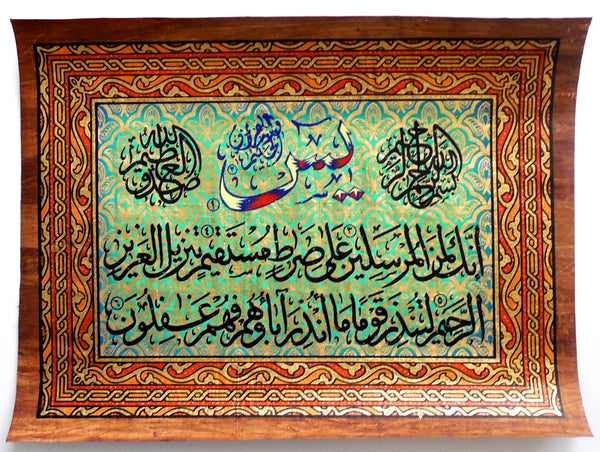 بسم الله الرحمن الرحيم
يس ① والقرآن الحكيم ②
صدق الله العظيم
إنك لمن المرسلين ③ على صرط مستقيم ④ تنزيل العزيز
الرحيم ⑤ لتنذر قوما ما أنذر آباؤهم فهم غفلون ⑥